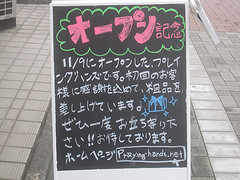 オープン記念
11/9にオープンした、プレイ
イングハンズです。初回のお客
様に感謝を込めて、粗品を
差し上げています。
ぜひ一度お立ち寄り下
さい!!お待しております。
ホームページ Praying-hands.net